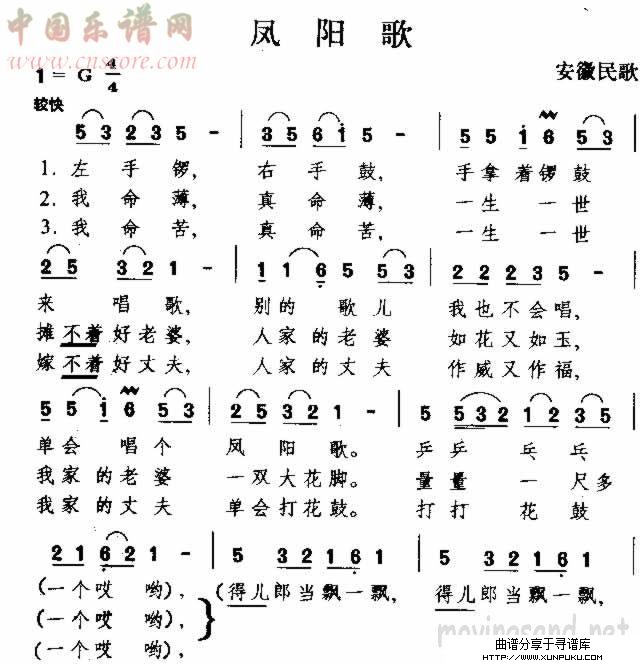 中国乐谱网
www.cnscore.com
凤阳歌
1=G 4/4
安徽民歌
较快
5 3 2 3 5 - | 3 5 6 1 5 - | 5 5 1 6 5 3
1.左手锣, 右手鼓, 手拿着锣鼓
2.我命薄, 真命薄, 一生一世
3.我命苦, 真命苦, 一生一世
2 5 3 2 1 - | 1 1 6 5 5 3 | 2 2 2 3 5 -
来唱歌, 别的歌儿我也不会唱,
摊不着好老婆, 人家的老婆如花又如玉,
嫁不着好丈夫, 人家的丈夫作威又作福,
5 5 1 6 5 3 | 2 5 3 2 1 - | 5 5 3 2 1 2 3 5
单会唱个凤阳歌。 乒乒乓乓
我家的老婆一双大花脚。 量量一尺多
我家的丈夫单会打花鼓。 打打花鼓
2 1 6 2 1 - | 5 3 2 1 6 1 | 5 3 2 1 6 1
(一个哎哟), (得儿郎当飘一飘, 得儿郎当飘一飘,
(一个哎哟),
(一个哎哟),
movingsand.net
曲谱分享于寻谱库
HTTP://WWW.XUNPUKU.COM